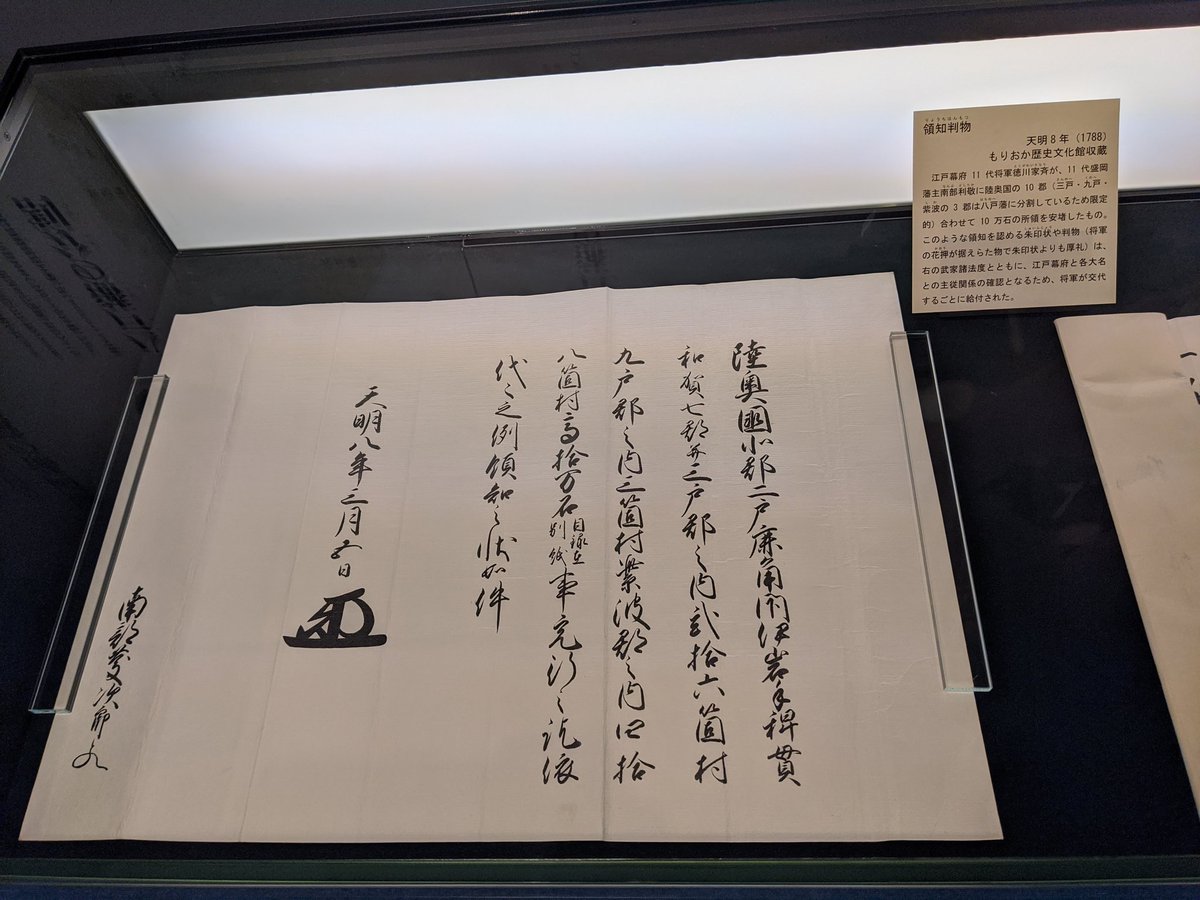 領知判物
天明8年（1788）
もりおか歴史文化館収蔵
江戸幕府 11 代将軍徳川家斉が、11 代盛岡
藩主南部利敬に陸奥国の 10 郡（三戸・九戸・
紫波の 3 郡は八戸藩に分割しているため限定
的）合わせて 10 万石の所領を安堵したもの。
このような領知を認める朱印状や判物（将軍
の花押が据えらた物で朱印状よりも厚礼）は、
右の武家諸法度とともに、江戸幕府と各大名
との主従関係の確認となるため、将軍が交代
するごとに給付された。
陸奥國北郡二戸鹿角閉伊岩手稗貫
和賀七郡并三戸郡之内弐拾六箇村
九戸郡之内三箇村紫波郡之内四拾
八箇村高拾万石目録在別紙事充行之訖依
代々之例領知之状如件
天明八年三月五日
南部慶次郎とのへ